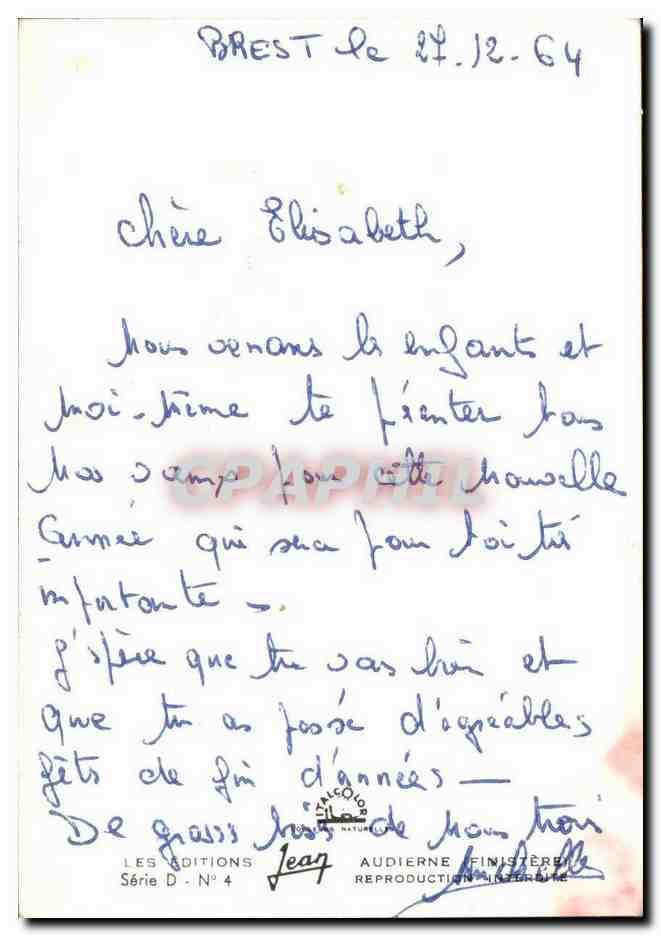 BREST le 27.12.64
Chère Elisabeth,
Nous venons les enfants et
moi-même te présenter tous
nos vœux pour cette nouvelle
année qui sera pour toi très
importante -
J'espère que tu vas bien et
que tu as passé d'agréables
fêtes de fin d'années -
De gross bises de nous trois
CPAPHIL
ITALCOLOR
COULEURS NATURELLES
LES EDITIONS Jean AUDIERNE (FINISTÈRE)
Série D - N° 4 REPRODUCTION INTERDITE